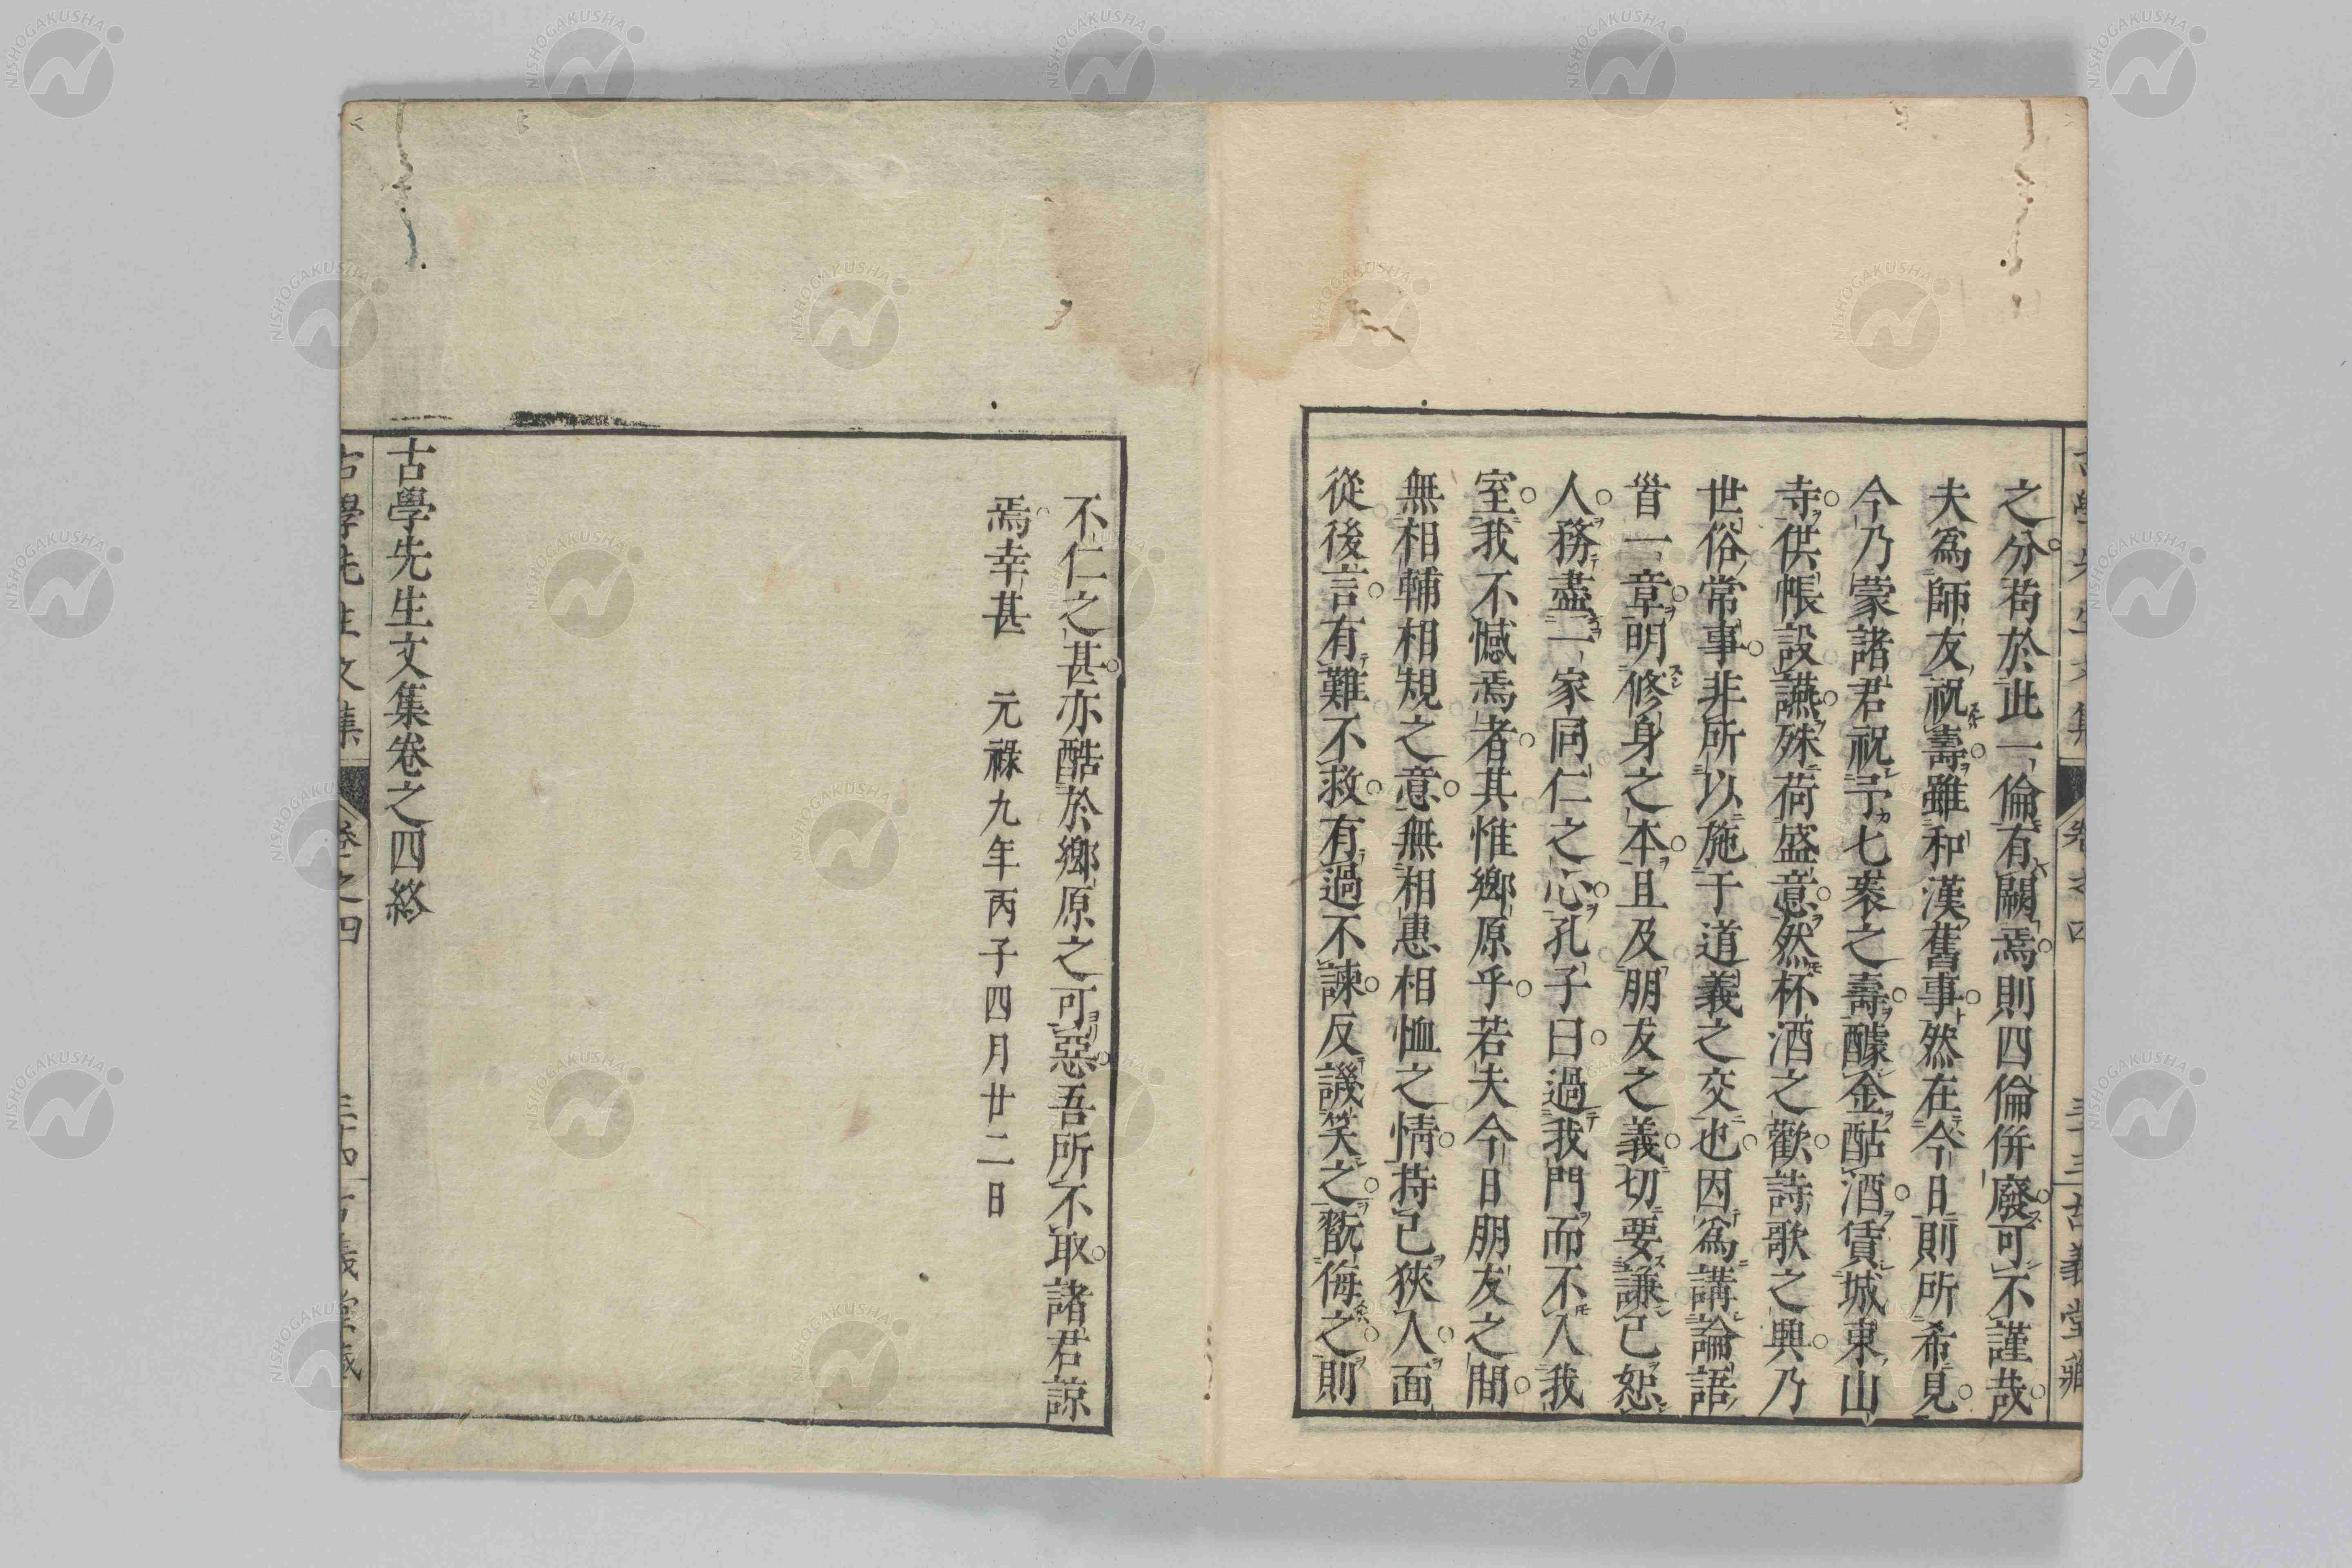 之分。苟於此一倫有闕焉。則四倫倂廢。可不謹哉。
夫爲師友祝壽。雖和漢舊事。然在今日則所希見。
今乃蒙諸君祝予七袠之壽。醵金酤酒。賃城東山
寺。供帳設讌。殊荷盛意。然杯酒之歡。詩歌之興。乃
世俗常事。非所以施于道義之交也。因爲講論語
首一章。明修身之本。且及朋友之義。切要謙己恕
人。務盡一家同仁之心。孔子曰。過我門而不入我
室。我不憾焉者。其惟鄉原乎。若夫今日朋友之間。
無相輔相規之意。無相惠相恤之情。持己狹人。面
從後言。有難不救。有過不諫。反譏笑之。翫侮之。則
不仁之甚。亦酷於鄉原之可惡。吾所不取。諸君諒
焉。幸甚 元祿九年丙子四月廿二日
古學先生文集卷之四終
古學先生文集 卷之四
NISHOGAKUSHA